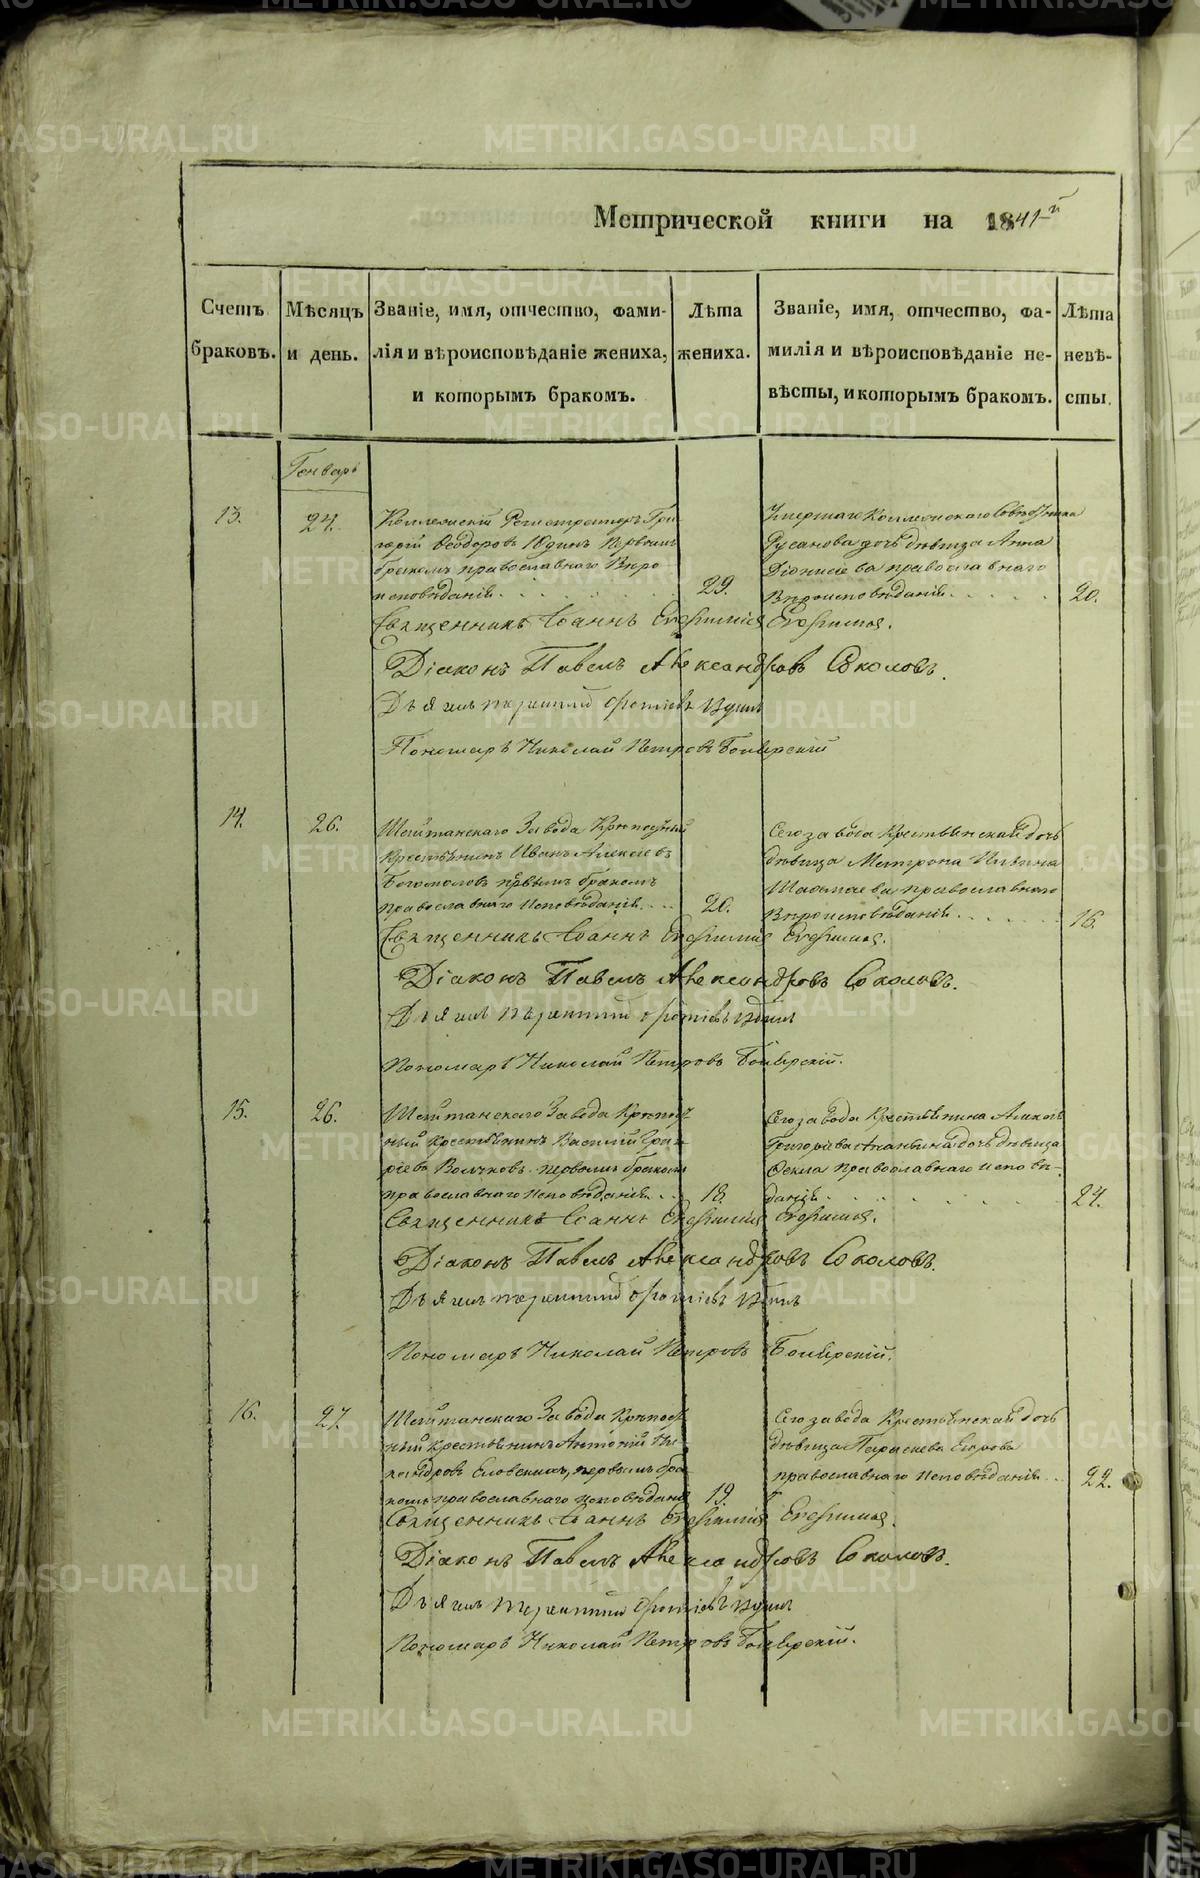 Метрической книги на 1841-й
Счетъ браковъ.
Мѣсяцъ и день.
Званіе, имя, отчество, фами-
лія и вѣроисповѣданіе жениха,
и которымъ бракомъ.
Лѣта
жениха.
Званіе, имя, отчество, фа-
милія и вѣроисповѣданіе не-
вѣсты, и которымъ бракомъ.
Лѣта
невѣ-
сты.
Генварь
13.
24.
Коллежскій Регистраторъ Гри
горій Ѳеодоровъ Юдинъ Первымъ
бракомъ православнаго Вѣро
исповѣданія.
29.
Умершаго Коллежскаго Совѣтника
Русанова дочь дѣвица Анна
Діонисіева православнаго
Вѣроисповѣданія.
20.
Священникъ Іоаннъ
Діаконъ Павелъ Александровъ Соколовъ.
Дьячекъ
Пономарь Николай Петровъ
14.
26.
Шайтанскаго Завода Крѣпостный
Крестьянинъ Иванъ Алексѣевъ
Богомоловъ первымъ бракомъ
православнаго Исповѣданія.
20.
Сего завода Крестьянская дочь
дѣвица Матрона
православнаго
Вѣроисповѣданія.
16.
Священникъ Іоаннъ
Діаконъ Павелъ Александровъ Соколовъ.
Дьячекъ
Пономарь Николай Петровъ
15.
26.
Шайтанскаго Завода Крѣпост
ный Крестьянинъ Василій Гри
ріевъ Волчковъ первымъ бракомъ
православнаго исповѣданія.
18.
Сего завода Крестьянина
Григорьева Ананьина дочь дѣвица
Ѳекла православнаго исповѣ-
данія.
24.
Священникъ Іоаннъ
Діаконъ Павелъ Александровъ Соколовъ.
Дьячекъ
Пономарь Николай Петровъ
16.
27.
Шайтанскаго Завода Крѣпост
ный Крестьянинъ Антоній Ни
кандровъ первымъ бра
комъ православнаго исповѣданія
19.
Сего завода Крестьянская дочь
дѣвица Параскева Егорова
православнаго исповѣданія.
22.
Священникъ Іоаннъ
Діаконъ Павелъ Александровъ Соколовъ.
Дьячекъ
Пономарь Николай Петровъ
METRIKI.GASO-URAL.RU